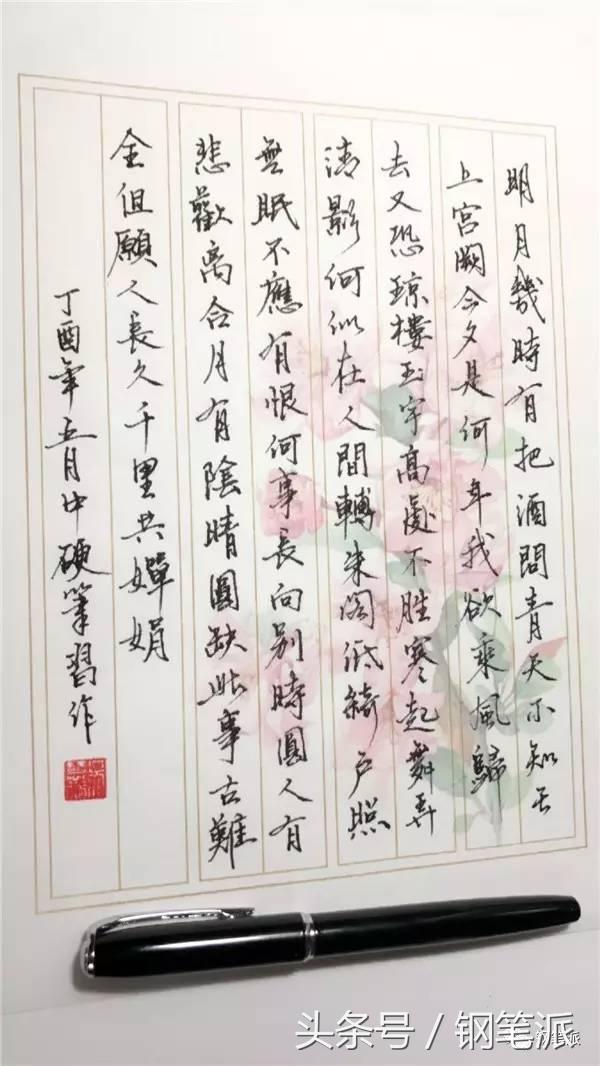 明月幾時有把酒問青天不知天
上宮闕今夕是何年我欲乘風歸
去又恐瓊樓玉宇高處不勝寒起舞弄
清影何似在人間轉朱閣低綺戶照
無眠不應有恨何事長向別時圓人有
悲歡离合月有陰晴圓缺此事古難
全但願人長久千里共嬋娟
丁酉年五月中硬筆習作
头条号 / 钢笔派